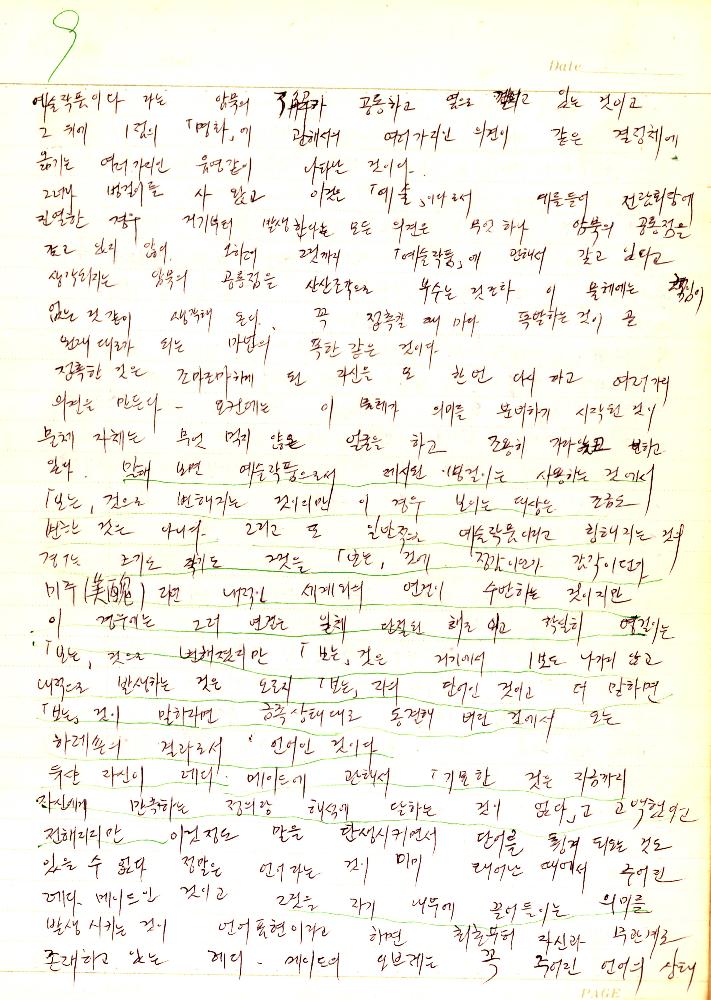 Date
예술작품이다 라는 암묵의 了解가 공통하고 옆으로 있는 것이고
그 위에 1점의 「명화」에 관해서의 여러가지인 의견이 같은 결정체에
옮기는 여러가지인 음영같이 나타난 것이다.
그러나 병걸이를 사 왔고 이것은 「예술」이다로서 예를들어 전람회장에
진열한 경우 거기부터 발생한다는 모든 의견은 무엇하나 암묵의 공통점을
갖고 있지 않아. 오히려 그것까지 「예술작품」에 관해서 갖고 있다고
생각되지는 암묵의 공통점을 산산조각으로 부수는 것조차 이 물체에는
없는 것 같이 생각해 온다. 꼭 접촉할 때 마다 폭발하는 것이 곧
원래대로가 되는 마법의 폭탄 같은 것이다.
접촉한 것은 조마조마하게 된 자신을 또 한번 다시 하고 여러가지
의견을 만든다 - 요컨데는 이 물체가 의미를 분비하기 시작된 것이
물체 자체는 무엇 먹지 않은 얼굴을 하고 조용히 하고
있다. 말해 보면 예술작품으로서 제시된 병걸이는 사용하는 것에서
「보는」것으로 변해지는 것이지만 이 경우 보이는 대상은 조금도
변하는 것은 아니며. 그리고 또 일반적으로 예술작품이라고 칭해지는 것의
경우는 크기도 작기도 그것을 「보는」것에 정감이던가 감각이던가
미추(美醜)라던 내적인 세계와의 연결이 수반하는 것이지만
이 경우에는 그런 연결은 일체 단절된 채로 이고 확실히 병걸이는
「보는」것으로 변해졌지만 「보는」것은 거기에서 1보도 나가지 않고
내적으로 발생하는 것은 오로지 「보는」라의 단어인 것이고 더 말하면
「보는」것이 말하자면 금족상태대로 동결해 버린 것에서 오는
하레숀의 결과로서 언어인 것이다
뒤샹 자신이 레디·메이드에 관해서 「기묘한 것은 지금까지
자신에게 만족하는 정의랑 해석에 달하는 것이 없다」고 고백했다고
전해지지만 이것정도 말을 탄생시키면서 단어를 튕겨 되돌는 것도
있을 수 없다 정말은 언어라는 것이 이미 태어난 때에서 주어린
레디·메이드인 것이고 그것을 자기 내부에 끌어들이는 의미를
발생시키는 것이 언어표현이라고 하면 최초부터 자신과 무관계로
존재하고 있는 레디-메이드의 오브제는 꼭 주어린 언어의 상태
PAGE